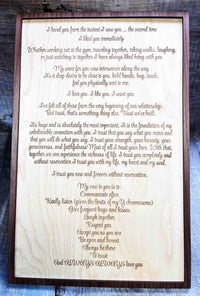 I loved you from the instant I saw you ... the second time
I liked you immediately
Whether working out at the gym, traveling together, taking walks, laughing,
or just snuggling together I have always liked being with you
My want for you was interwoven along the way
It's a deep desire to be close to you, hold hands, hug, touch,
feel you physically next to me.
I love you, I like you, I want you
I've felt all of those from the very beginning of our relationship.
But trust, that's something else. That we've built.
It's huge and is absolutely the most important. It is the foundation of my
unbelievable connection with you. I trust that you say what you mean and
that you will do what you say. I trust your strength, your honesty, your
genuineness, and faithfulness. Most of all I trust your love. With that,
together we can experience the richness of life. I trust you completely and
without reservation. I trust you with my life, my heart and my soul.
I trust you now and forever without reservation.
My vow to you is to:
Communicate often
Really listen (given the limits of my Y chromosome)
Give frequent hugs and kisses
Laugh together
Respect you
Accept you as you are
Be open and honest
Always be there
To trust
And ALWAYS ALWAYS love you